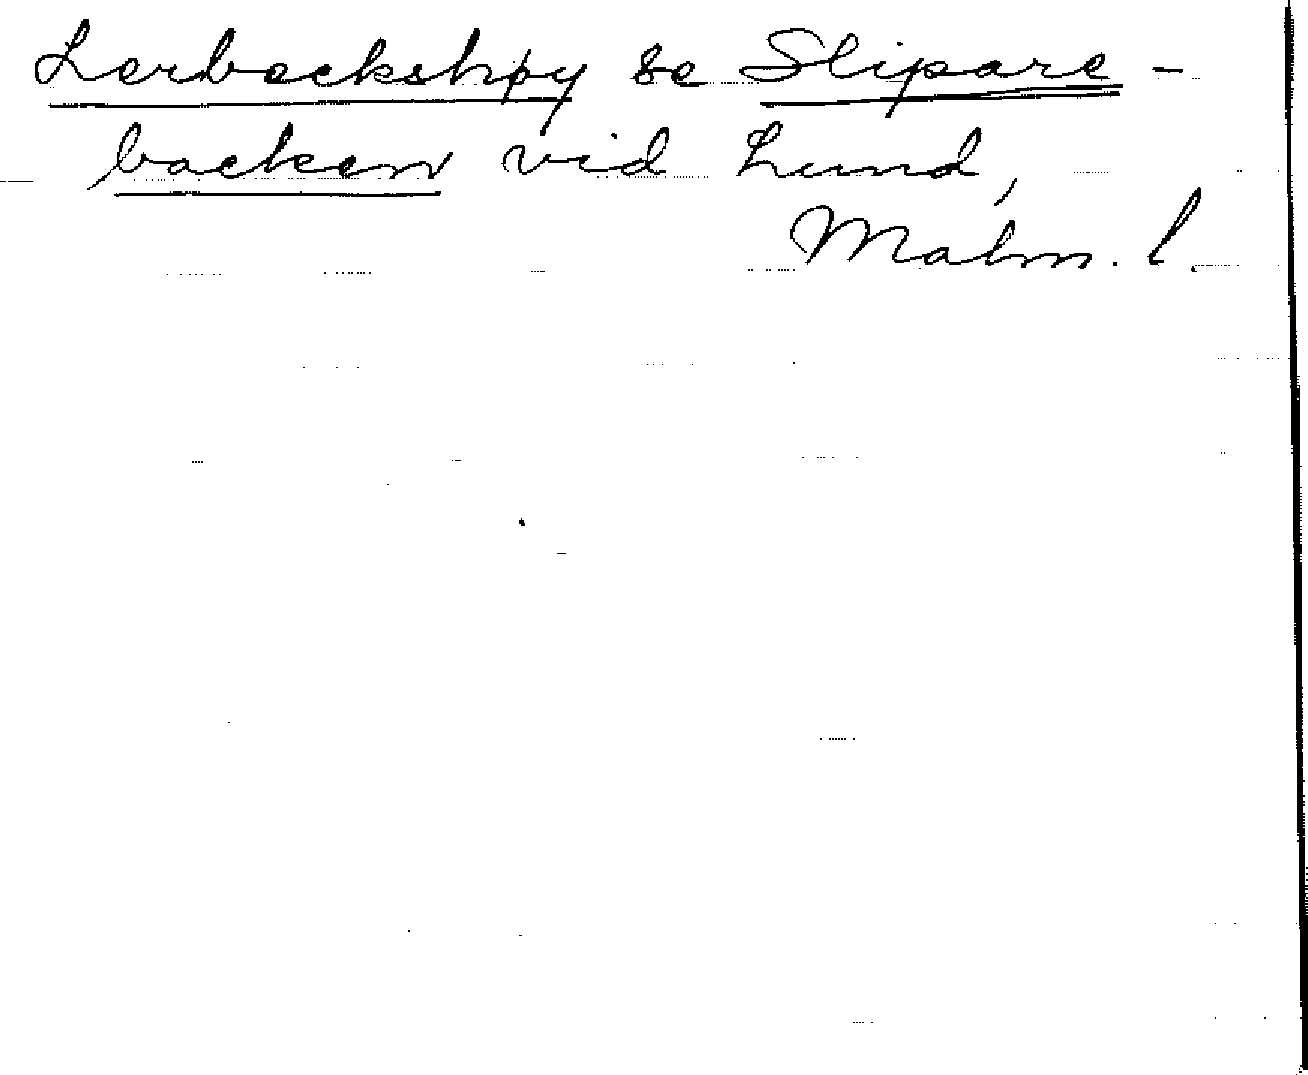 Lerbackshøg se Slipare-
backen vid Lund,
Malm. l.